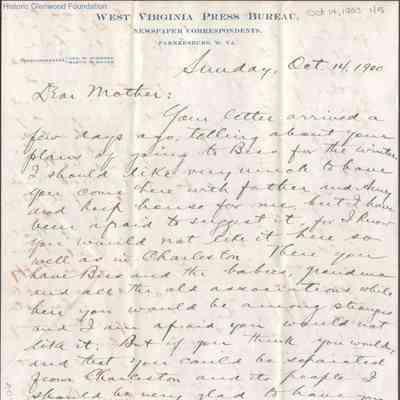 Historic Glenwood Foundation
Oct 14, 1900
WEST VIRGINIA PRESS BUREAU,
NEWSPAPER CORRESPONDENTS,
PARKERSBURG, W. VA.
Sunday, Oct. 14, 1900
Dear Mother:
Your letter arrived a
few days ago, telling about your
plans of going to Bess for the winter
I should like very much to have
you come here with father and
and keep house for me, but I have
been afraid to suggest it, for I know
you would not like it here so
well as in Charleston. There you
have Bess and the babies, grandma
and all the old associations while
here you would be among strangers
and I am afraid you would not
like it. But if you think you would,
and that you could be separated
from Charleston and its people I
should be very glad to have you